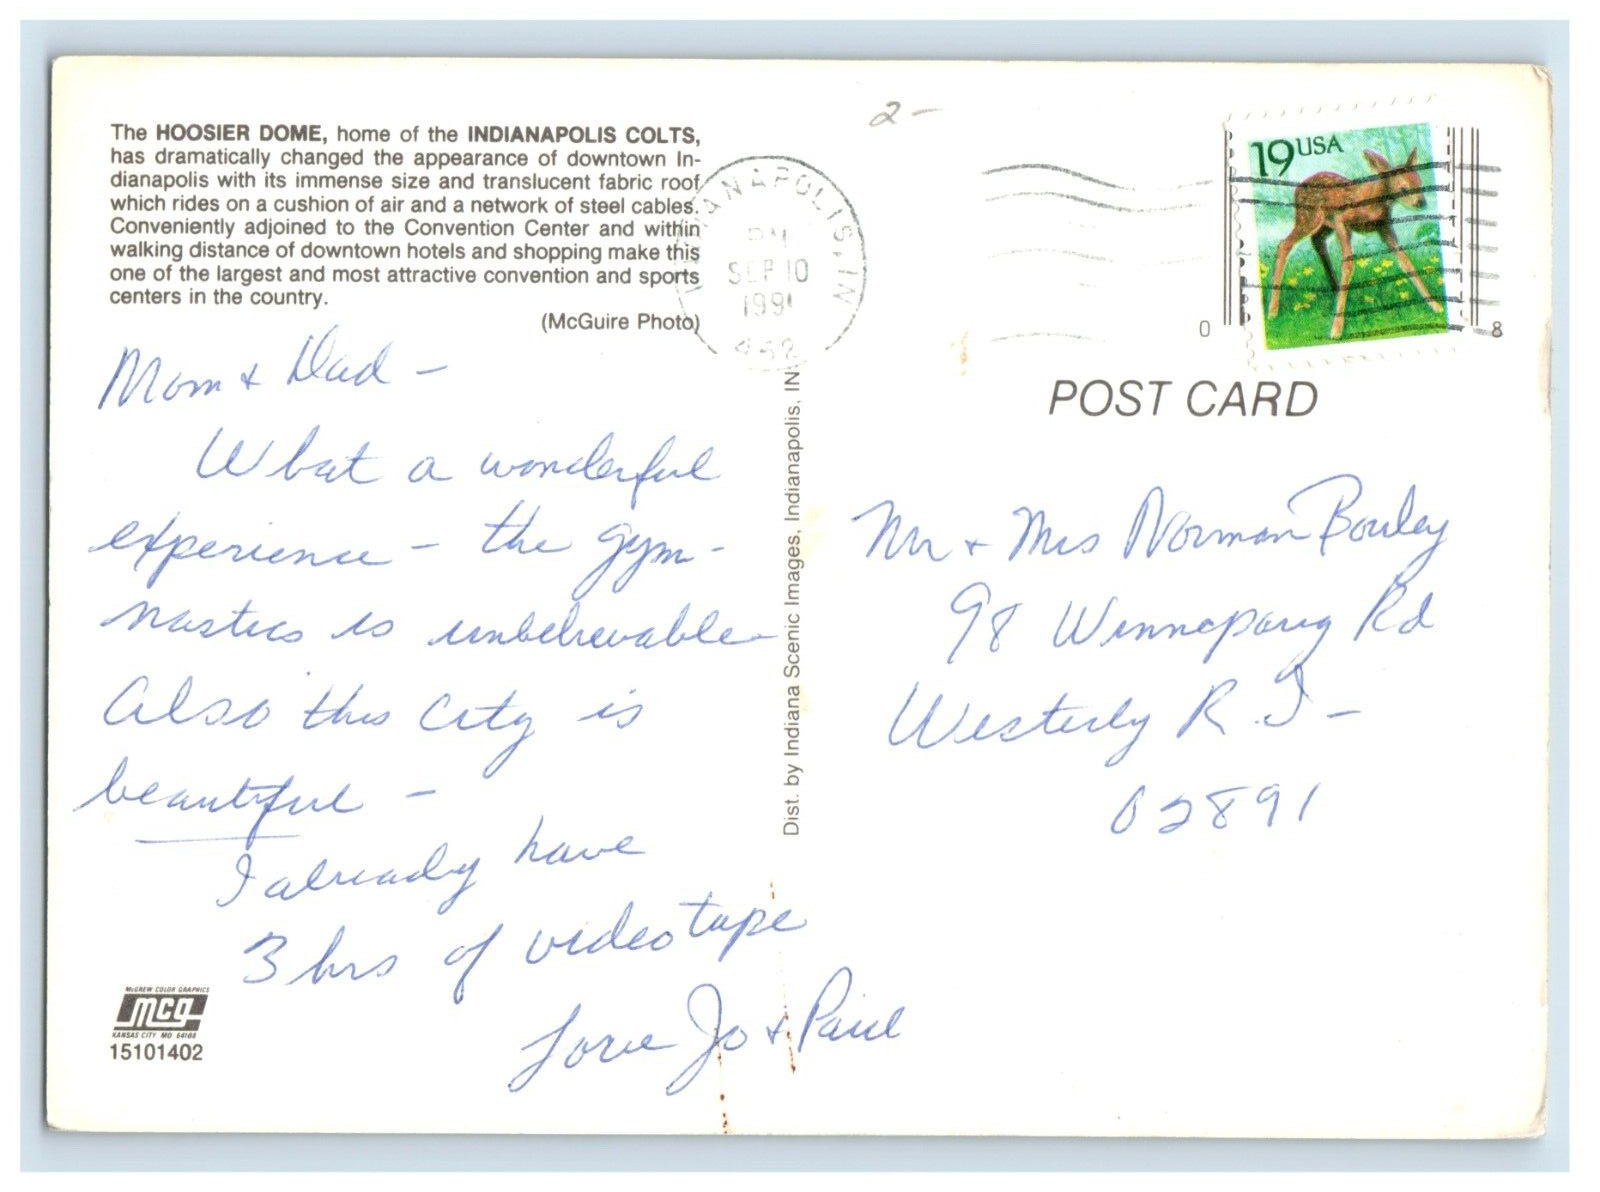 2-
The HOOSIER DOME, home of the INDIANAPOLIS COLTS,
has dramatically changed the appearance of downtown In-
dianapolis with its immense size and translucent fabric roof
which rides on a cushion of air and a network of steel cables.
Conveniently adjoined to the Convention Center and within
walking distance of downtown hotels and shopping make this
one of the largest and most attractive convention and sports
centers in the country.
(McGuire Photo)
Mom & Dad -
What a wonderful
experience - the gym-
nastics is unbelievable
Also this City is
beautiful -
I already have
3 hrs of videotape
Love Jo & Paul
McGREW COLOR GRAPHICS
mcg
KANSAS CITY MO 64108
15101402
Dist. by Indiana Scenic Images, Indianapolis, IN
INDIANAPOLIS, IN
PM
SEP 10
1991
462
19 USA
0 8
POST CARD
Mr & Mrs Norman
98 Winnapaug Rd
Westerly R.I-
02891